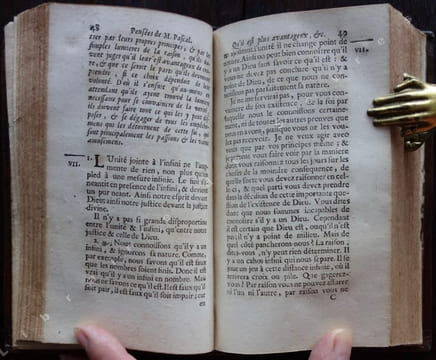 48
Pensées de M. Pascal.
rier par leurs propres principes, & par les
simples lumieres de la raison, qu'ils doi-
vent juger qu'il leur est avantageux de croi-
re, & que ce seroit le parti qu'ils devroient
prendre, si ce choix dépendoit de leur
volonté. D'où il s'ensuit qu'au moins en
attendant qu'ils ayent trouvé la lumiere
necessaire pour se convaincre de la
ils doivent faire tout ce qui les y peut
& se dégager de tous les
mens qui les détournent de cette foi, qui sont
principalement les passions & les vains
amusemens.
VII.
1. L'Unité jointe à l'infini ne l'aug-
mente de rien, non plus qu'un
pied à une mesure infinie. Le fini s'a-
neantit en presence de l'infini, & devient
un pur neant. Ainsi notre esprit devant
Dieu ainsi notre justice devant la justice
divine.
Il n'y a pas si grande disproportion
entre l'unité & l'infini, qu'entre notre
justice & celle de Dieu.
2. Nous connoissons qu'il y a un
infini, & ignorons sa nature. Comme,
par exemple, nous savons qu'il est faux
que les nombres soient finis. Donc il est
vrai qu'il y a un infini en nombre. Mais
nous ne savons ce qu'il est. Il est faux qu'il
soit pair, il est faux qu'il soit impair; car
en
Qu'il est plus avantageux, &c.
49
VII.
ajoûtant l'unité il ne change point de
nature. Ainsi on peut bien connoître qu'il
y a un Dieu sans savoir ce qu'il est : &
vous ne devez pas conclure qu'il n'y a
point de Dieu, de ce que nous ne con-
noissons pas parfaitement sa nature.
Je ne me servirai pas, pour vous con-
vaincre de son existence, de la foi par
laquelle nous le connoissons certaine-
ment, ni de toutes les autres preuves que
nous en avons, puisque vous ne les vou-
lez pas recevoir. Je ne veux agir avec
vous que par vos principes même ; &
je prétens vous faire voir par la maniere
dont vous raisonnez tous les jours sur les
choses de la moindre consequence, de
quelle sorte vous devez raisonner en cel-
le-ci, & quel parti vous devez prendre
dans la décision de cette importante que-
stion de l'existence de Dieu. Vous dites
donc que nous sommes incapables de
connoître s'il y a un Dieu. Cependant
il est certain que Dieu est, ou qu'il n'est
pas; il n'y a point de milieu. Mais de
quel côté pancherons-nous? La raison,
dites-vous, n'y peut rien déterminer. Il
y a un cahos infini qui nous separe. Il se
joue un jeu à cette distance infinie, où il
arrivera croix ou pile. Que gagerez-
vous? Par raison vous ne pouvez assurer
ni l'un ni l'autre, par raison vous ne
C